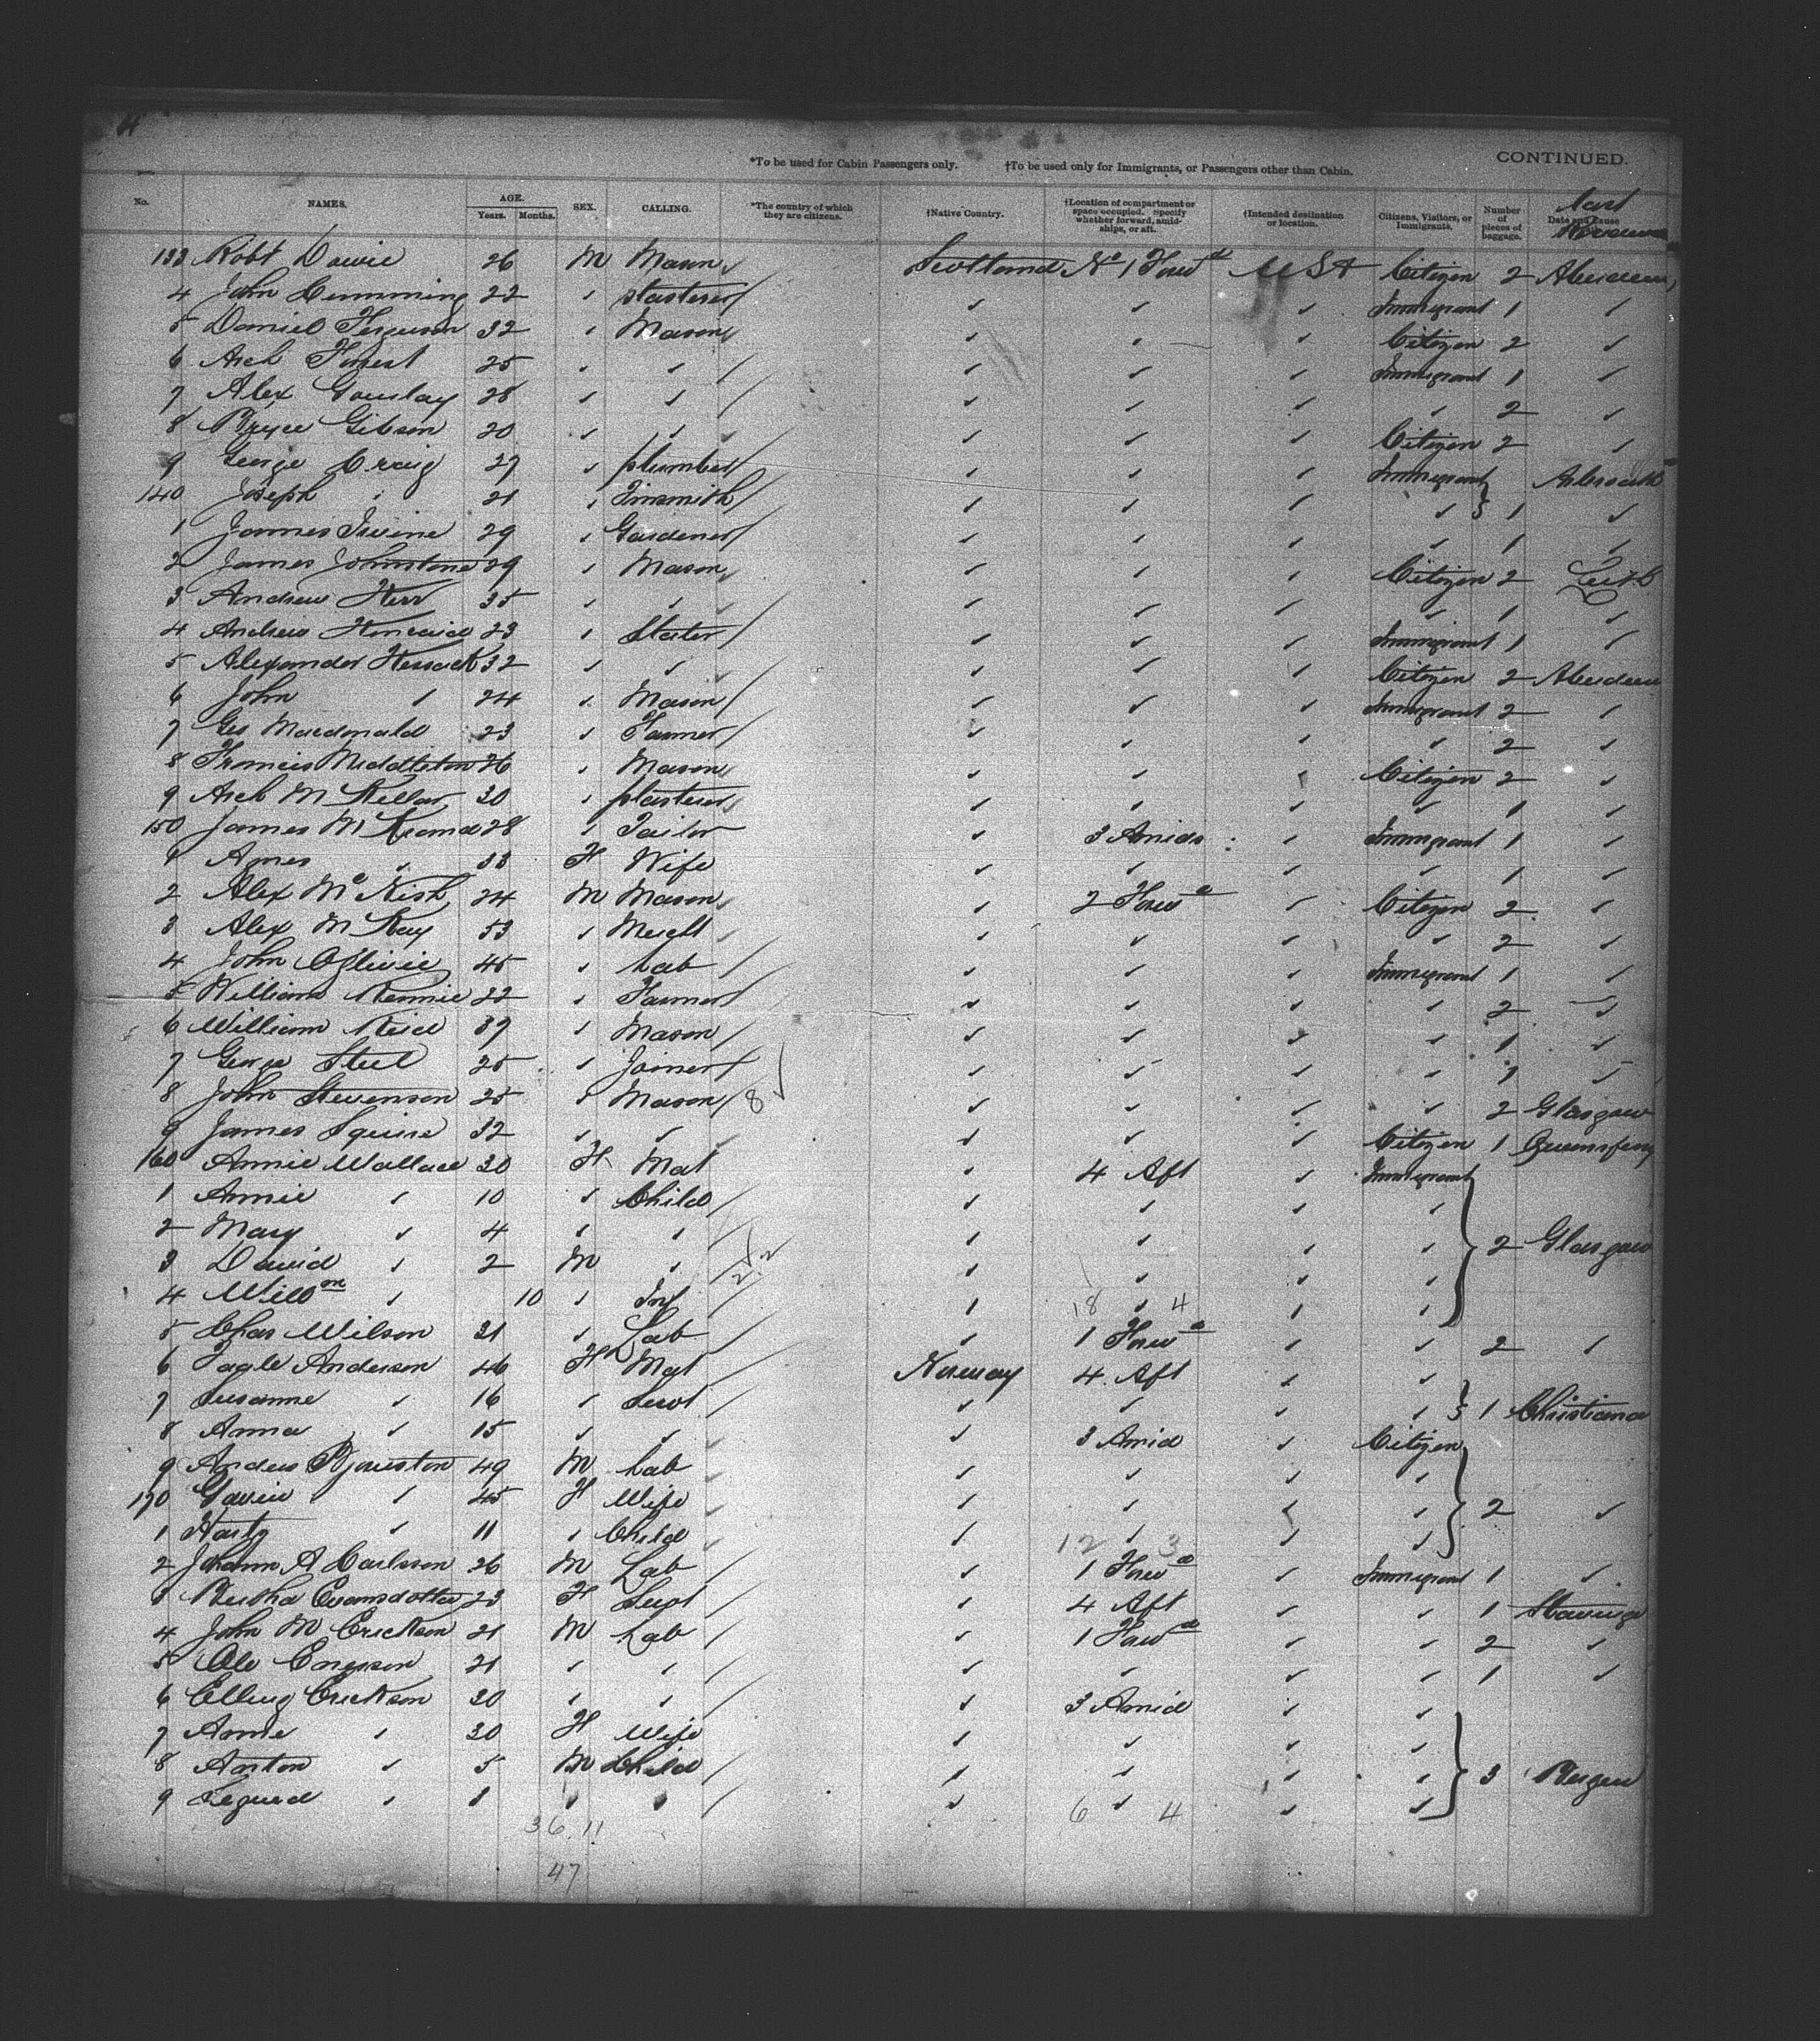 4
*To be used for Cabin Passengers only. †To be used only for Immigrants, or Passengers other than Cabin. CONTINUED.
No. NAMES. AGE. Years. Months. SEX. CALLING. *The country of which they are citizens. †Native Country. †Location of compartment or space occupied. Specify whether forward, amidships, or aft. †Intended destination or location. Citizens, Visitors, or Immigrants. Number of pieces of baggage. Date and Cause Last Residence
133 Robt Dowie 26 M Mason Scotland No 1 Forwd USA Citizen 2 Aberdeen
4 John Cumming 22 ✓ plasterer ✓ ✓ ✓ Immigrant 1 ✓
5 Daniel Ferguson 32 ✓ Mason ✓ ✓ ✓ Citizen 2 ✓
6 Arch Forest 25 ✓ ✓ ✓ ✓ ✓ Immigrant 1 ✓
7 Alex Gourlay 28 ✓ ✓ ✓ ✓ ✓ ✓ 2 ✓
8 Bryce Gibson 20 ✓ ✓ ✓ ✓ ✓ Citizen 2 ✓
9 George Craig 27 ✓ plumber ✓ ✓ ✓ Immigrant Arbroath
140 Joseph ✓ 21 ✓ Tinsmith ✓ ✓ ✓ ✓ } 1 ✓
1 James Irvine 29 ✓ Gardener ✓ ✓ ✓ ✓ 1 ✓
2 James Johnstone 29 ✓ Mason ✓ ✓ ✓ Citizen 2 Leith
3 Andrew Kerr 35 ✓ ✓ ✓ ✓ ✓ ✓ 1 ✓
4 Andrew 23 ✓ Slater ✓ ✓ ✓ Immigrant 1 ✓
5 Alexander 32 ✓ ✓ ✓ ✓ ✓ Citizen 2 Aberdeen
6 John ✓ 24 ✓ Mason ✓ ✓ ✓ Immigrant 2 ✓
7 Geo Macdonald 23 ✓ Farmer ✓ ✓ ✓ ✓ 2 ✓
8 Francis Middleton 26 ✓ Mason ✓ ✓ ✓ Citizen 2 ✓
9 Arch McKellar 30 ✓ plasterer ✓ ✓ ✓ ✓ 1 ✓
150 James 28 ✓ Tailor ✓ 3 Amids ✓ Immigrant 1 ✓
1 Agnes ✓ 33 F Wife ✓ ✓ ✓ ✓ 1 ✓
2 Alex McNish 24 M Mason ✓ 2 Forwd ✓ Citizen 2 ✓
3 Alex McKay 53 ✓ Mercht ✓ ✓ ✓ ✓ 2 ✓
4 John Ogilivie 45 ✓ Lab ✓ ✓ ✓ Immigrant 1 ✓
5 William Rennie 22 ✓ Farmer ✓ ✓ ✓ ✓ 2 ✓
6 William Reid 37 ✓ Mason ✓ ✓ ✓ ✓ 1 ✓
7 George Steel 25 ✓ Joiner ✓ ✓ ✓ ✓ 1 ✓
8 John Stevenson 25 ✓ Mason 8 ✓ ✓ ✓ ✓ ✓ 2 Glasgow
9 James Squire 32 ✓ ✓ ✓ ✓ ✓ Citizen 1 Queensferry
160 Annie Wallace 30 F Mat ✓ 4 Aft ✓ Immigrant
1 Annie ✓ 10 ✓ Child ✓ ✓ ✓ ✓
2 Mary ✓ 4 ✓ ✓ ✓ ✓ ✓ ✓ } 2 Glasgow
3 David ✓ 2 M ✓ 2 2 ✓ ✓ ✓ ✓
4 Willm ✓ 10 ✓ Inf ✓ 18 ✓ 4 ✓ ✓
5 Chas Wilson 31 ✓ Lab ✓ 1 Forwd ✓ ✓ 2 ✓
6 Anderson 46 F Mat Norway 4 Aft ✓ ✓
7 Susanne ✓ 16 ✓ Servt ✓ ✓ ✓ ✓ } 1 Christiana
8 Anna ✓ 15 ✓ ✓ ✓ 3 Amid ✓ Citizen
9 Anders 49 M Lab ✓ ✓ ✓ ✓
170 ✓ 45 F Wife ✓ ✓ ✓ ✓ } 2 ✓
1 ✓ 11 ✓ Child ✓ 12 ✓ 3 ✓ ✓
2 Johann A Carlsson 26 M Lab ✓ 1 Forwd ✓ Immigrant 1 ✓
3 Bertha 23 F Servt ✓ 4 Aft ✓ ✓ 1
4 John M Erickson 21 M Lab ✓ 1 Forwd ✓ ✓ 2 ✓
5 Ole 21 ✓ ✓ ✓ ✓ ✓ ✓ 1 ✓
6 Elling Erickson 30 ✓ ✓ ✓ 3 Amid ✓ ✓
7 Anne ✓ 30 F Wife ✓ ✓ ✓ ✓
8 Anton ✓ 5 M Child ✓ ✓ ✓ ✓ } 3 Bergen
9 ✓ ✓ ✓ ✓ 6 ✓ 4 ✓ ✓
36.11
47